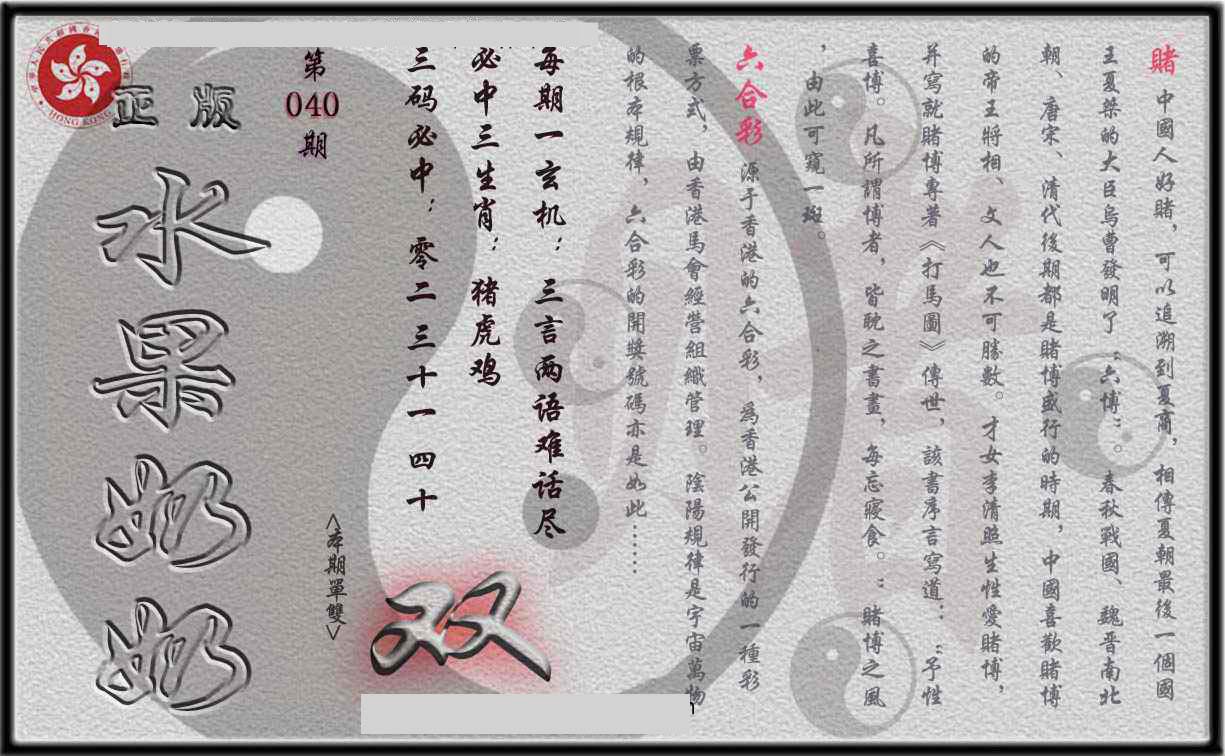 賭 中國人好賭，可以追溯到夏商，相傳夏朝最後一個國
王夏桀的大臣烏曹發明了“六博”春秋戰國、魏晋南北
朝、唐宋、清代後期都是賭博盛行的時期，中國喜歡賭博
的帝王將相、文人也不可勝數。才女李清照生性愛賭博，
并寫就賭博專著《打馬圖》傳世，該書序言寫道：“予性
喜博。凡所謂博者，皆耽之書畫，每忘寢食。”賭博之風
，由此可窺一斑。
六合彩 源于香港的六合彩，為香港公開發行的一種彩
票方式，由香港馬會經營組織管理。陰陽規律是宇宙萬物
的根本規律，六合彩的開獎號碼亦是如此……
每期一玄机：三言两语难话尽
必中三生肖：猪虎鸡
三码必中：零二 三十一 四十
双
<本期單雙>
第
040
期
正版
水果奶奶
HONG KONG